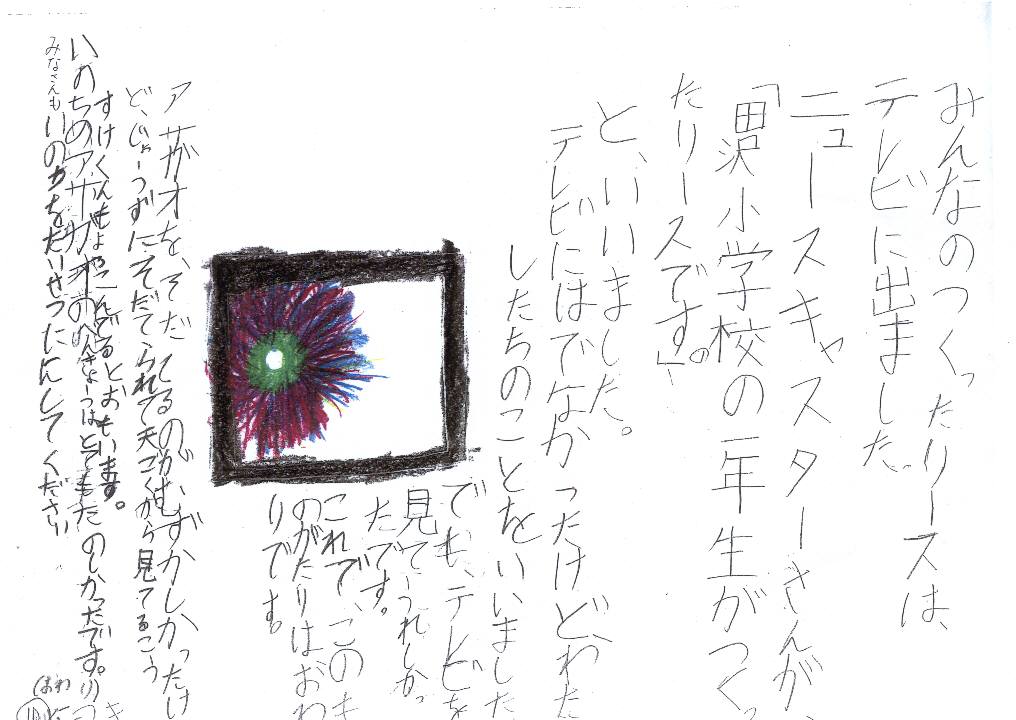 みんなのつくったリースは、
テレビに出ました。
ニュースキャスターさんが、
「田沢小学校の一年生がつくっ
たリースです。」
と、いいました。
テレビにはでなかったけど、わた
したちのことをいいました
でも、テレビを
見てうれしかっ
たです。
これで、このも
のがたりはおわ
りです。
アサガオを、そだてるのがむずかしかったけ
ど、じょーうずにそだてられて天ごくから見てるこう
すけくんもよろこんでるとおもいます。
いのちのアサガオのべんきょーうはとてもたのしかったです。
みなさんもいのちをだいせつにしてください